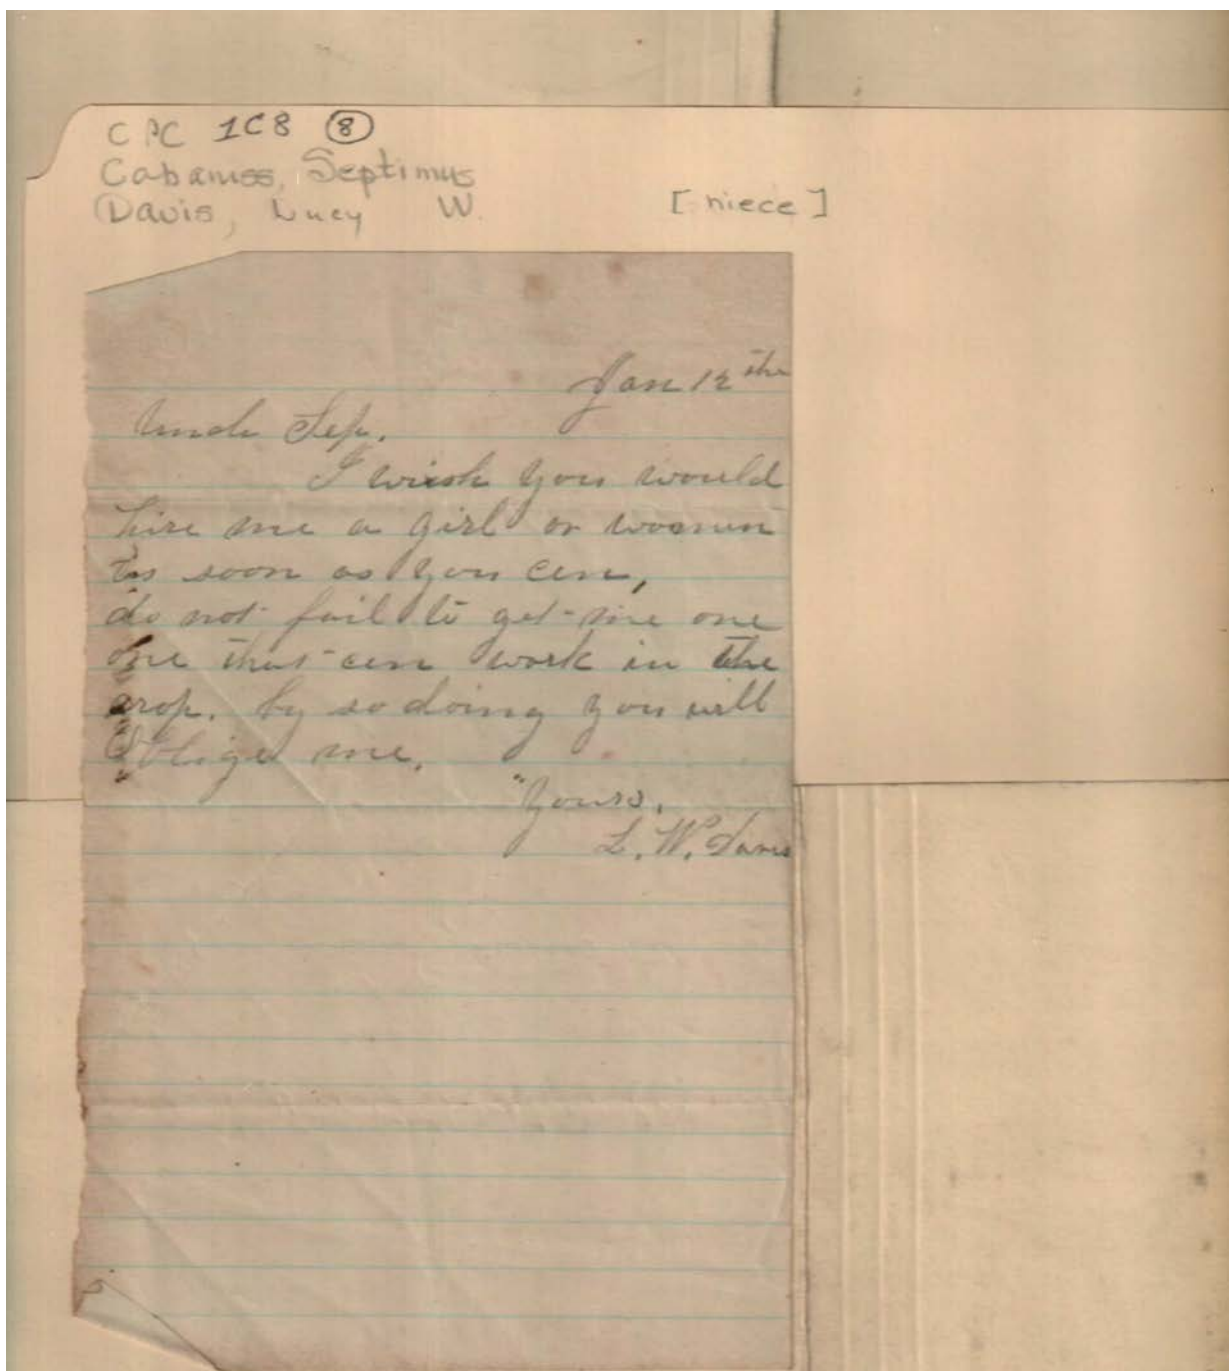 CPC 1C8 8
Cabaniss, Septimus
Davis, Lucy W. [niece]
Jan 12th
Uncle Sep.
I wish you would
hire me a girl or woman
as soon as you can,
do not fail to get me one
one that can work in the
crop. by so doing you will
Oblige me.
"Yours.
L. W. Davis